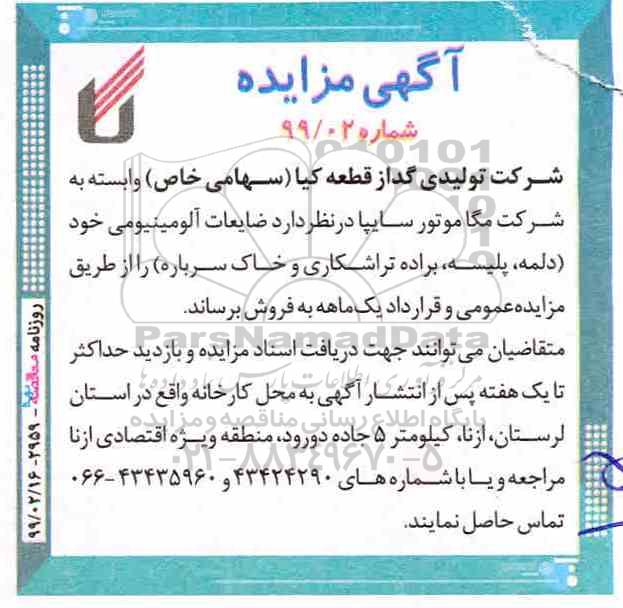 آگهی مزایده
شماره ۹۹/۰۲
شرکت تولیدی گداز قطعه کیا (سهامی خاص) وابسته به
شرکت مگا موتور سایپا در نظر دارد ضایعات آلومینیومی خود
(دلمه، پلیسه، براده تراشکاری و خاک سرباره) را از طریق
مزایده‌عمومی و قرارداد یک‌ماهه به فروش برساند.
متقاضیان می‌توانند جهت دریافت اسناد مزایده و بازدید حداکثر
تا یک هفته پس از انتشار آگهی به محل کارخانه واقع در استان
لرستان، ازنا، کیلومتر ۵ جاده دورود، منطقه ویژه اقتصادی ازنا
مراجعه و یا با شماره های ۴۳۴۲۴۲۹۰ و ۴۳۴۳۵۹۶۰-۰۶۶
تماس حاصل نمایند.
روزنامه مناقصه مزایده - ۲۹۵۹- ۹۹/۰۲/۱۶
ParsNamadData
مرکز فرآوری اطلاعات پارس نماد داده ها
پایگاه اطلاع رسانی مناقصه و مزایده
۰۲۱-۸۸۳۴۹۶۷۰-۵